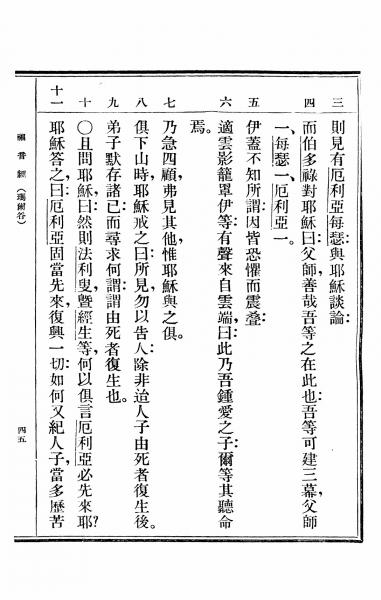 三 則見有厄利亞每瑟與耶穌談論:
四 而伯多祿對耶穌曰:父師,善哉吾等之在此也:吾等可建三幕,父師
一、每瑟一、厄利亞一。
五 伊蓋不知所謂:因皆恐懼而震疊:
六 適雲影籠罩伊等:有聲來自雲端,曰:此乃吾鍾愛之子:爾等其聽命
焉。
七 乃急四顧,弗見其他,惟耶穌與之俱。
八 俱下山時,耶穌戒之曰:所見,勿以告人:除非迨人子由死者復生後。
九 弟子默存諸己:而尋求何謂:謂由死者復生也。
十 〇且問耶穌曰:然則法利叟暨經生等,何以俱言厄利亞必先來耶?
十一 耶穌答之曰:厄利亞固當先來,復興一切:如何又紀人子,當多歷苦
福音經(瑪爾谷) 四五